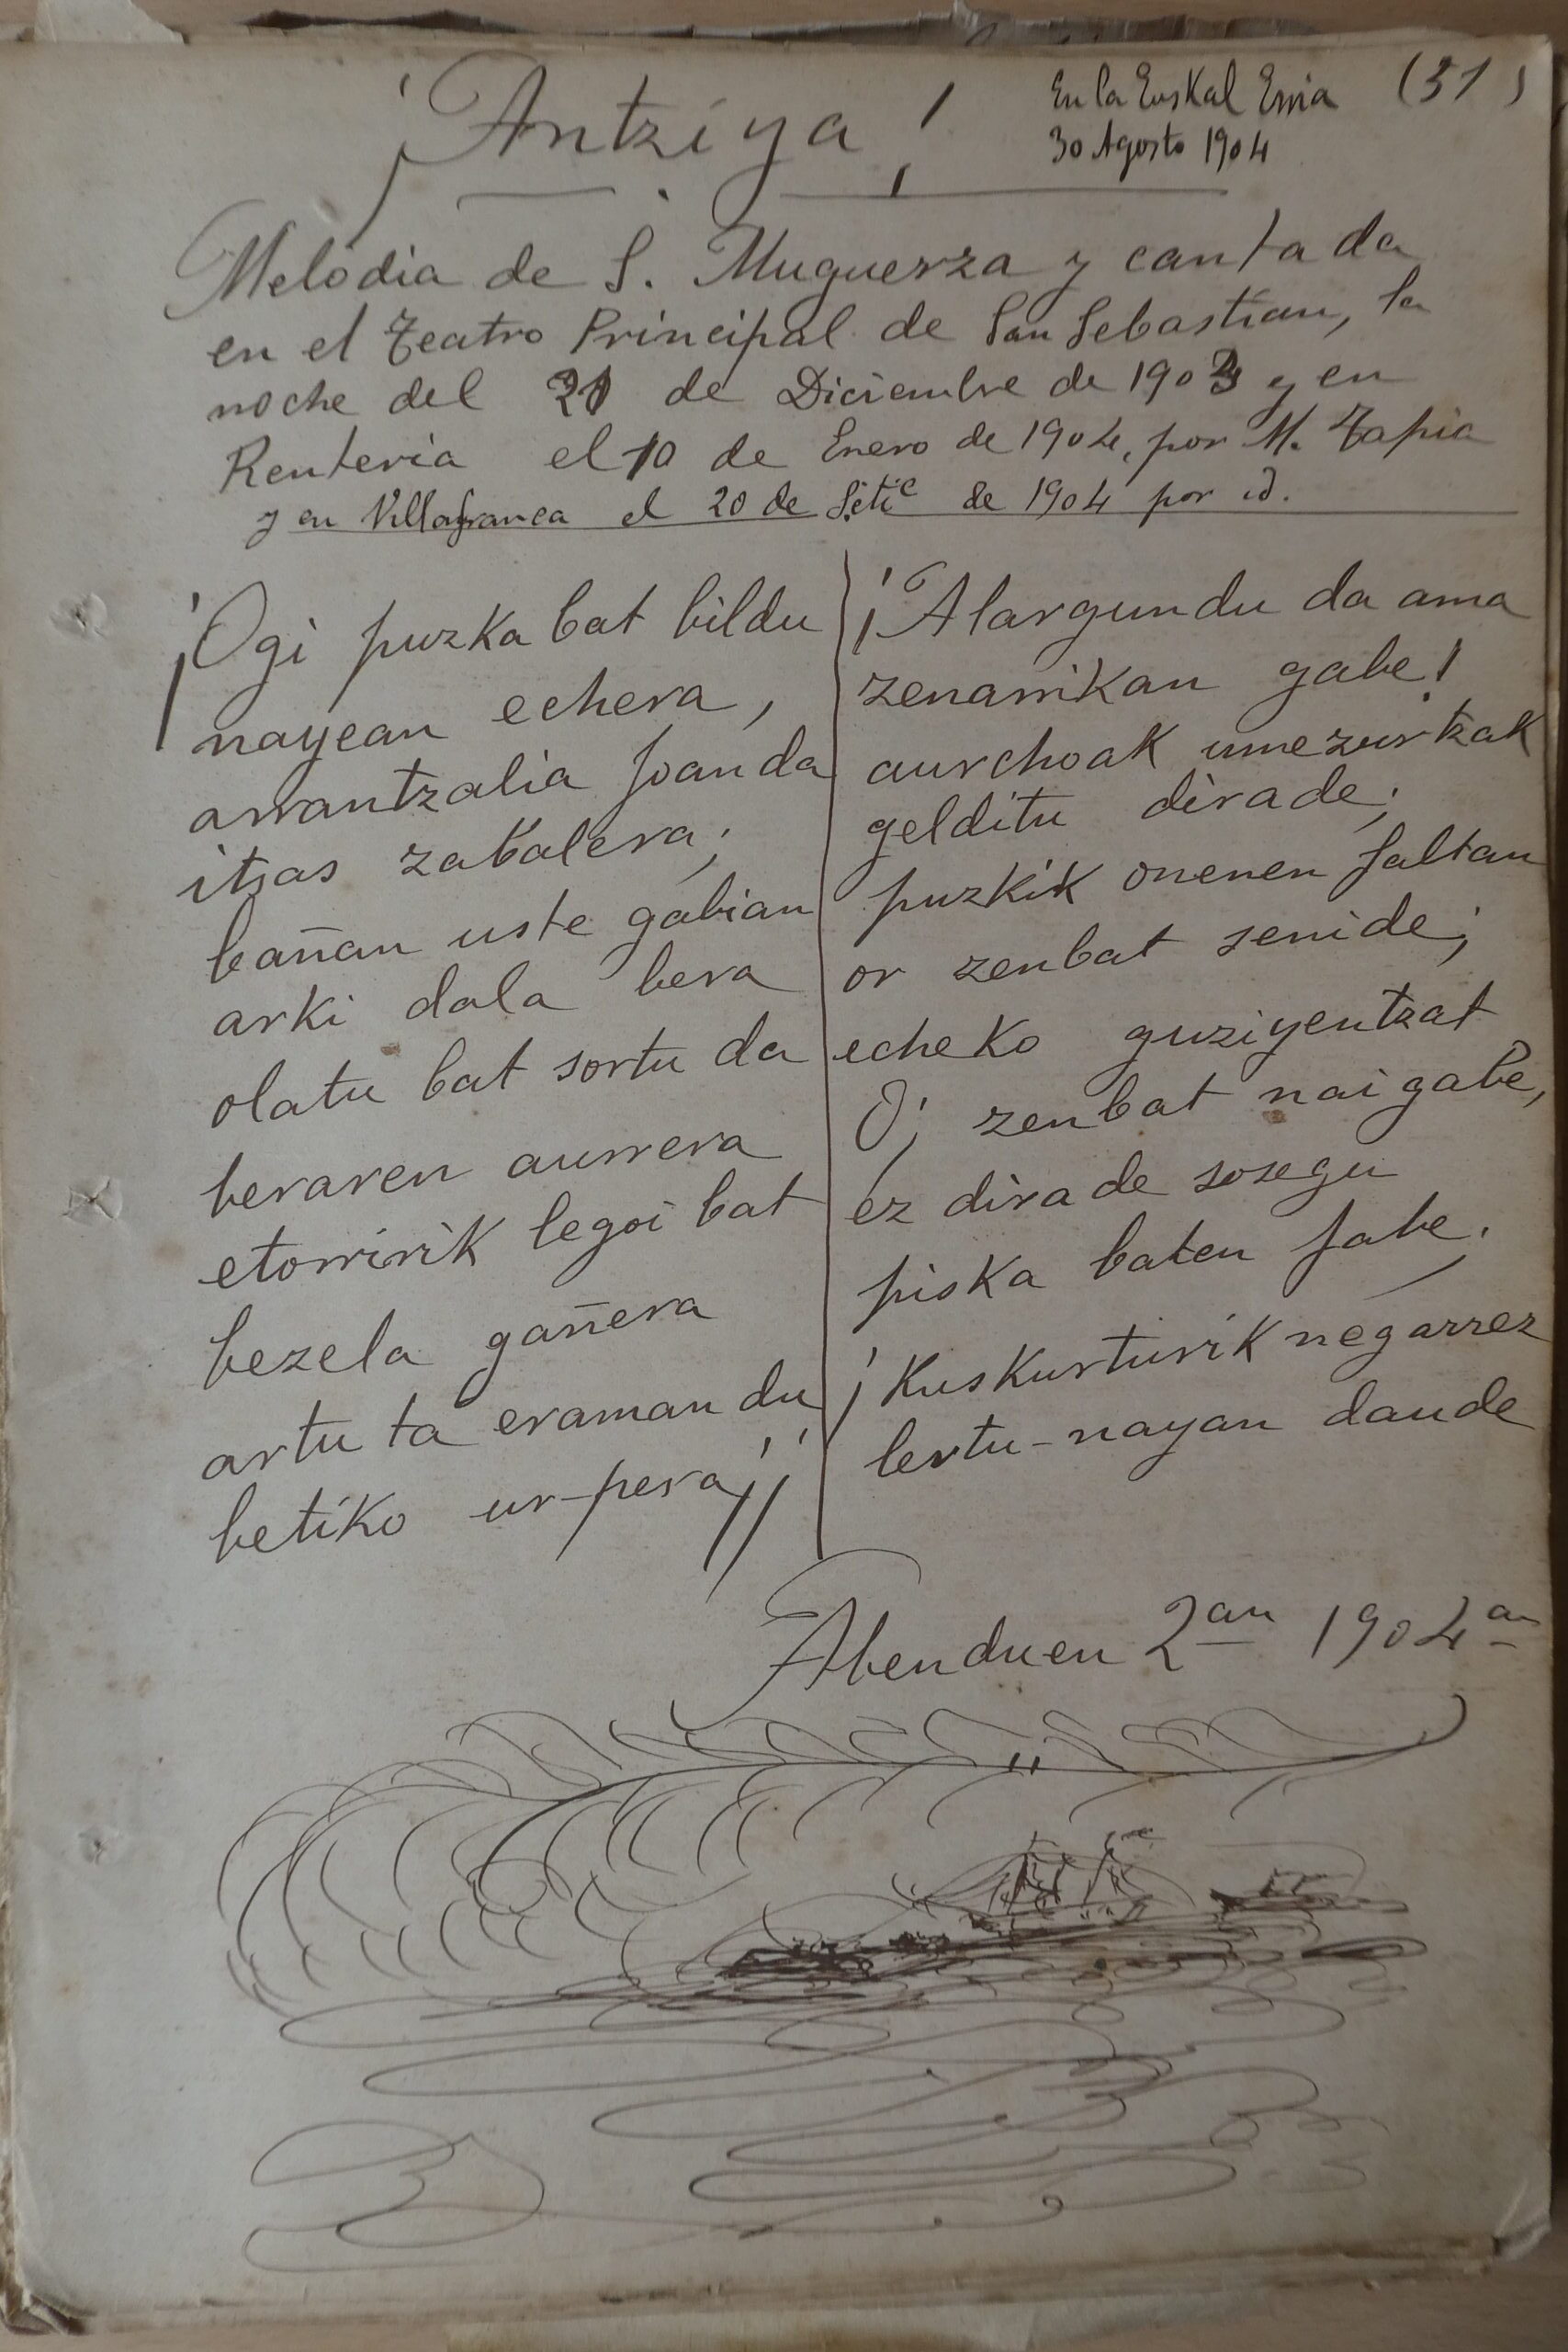 ¡Antziya!
En la Euskal Erria (31)
30 Agosto 1904
Melodia de S. Muguerza y cantada
en el Teatro Principal de San Sebastian, la
noche del de Diciembre de 1903 y en
Renteria el 10 de Enero de 1904, por M. Tapia
y en Villafranca el 20 de Setie de 1904 por id.
¡Ogi puzka bat bildu
nayean echera,
arrantzalia joan da
itsas zabalera;
bañan uste gabian
arki dala bera
olatu bat sortu da
beraren aurrera
etorririk legoi bat
bezela gañera
artu ta eraman du
betiko ur-pera¡¡
¡Alargundu da ama
zenarrikan gabe!
aurchoak umezurtzak
gelditu dirade;
puzkik onenen faltan
or zenbat senide;
echeko guziyentzat
O¡ zenbat naigabe,
ez dirade sosegu
piska baten jabe.
¡Kuskurturik negarrez
lertu-nayan daude
Abenduen 2an 1904an